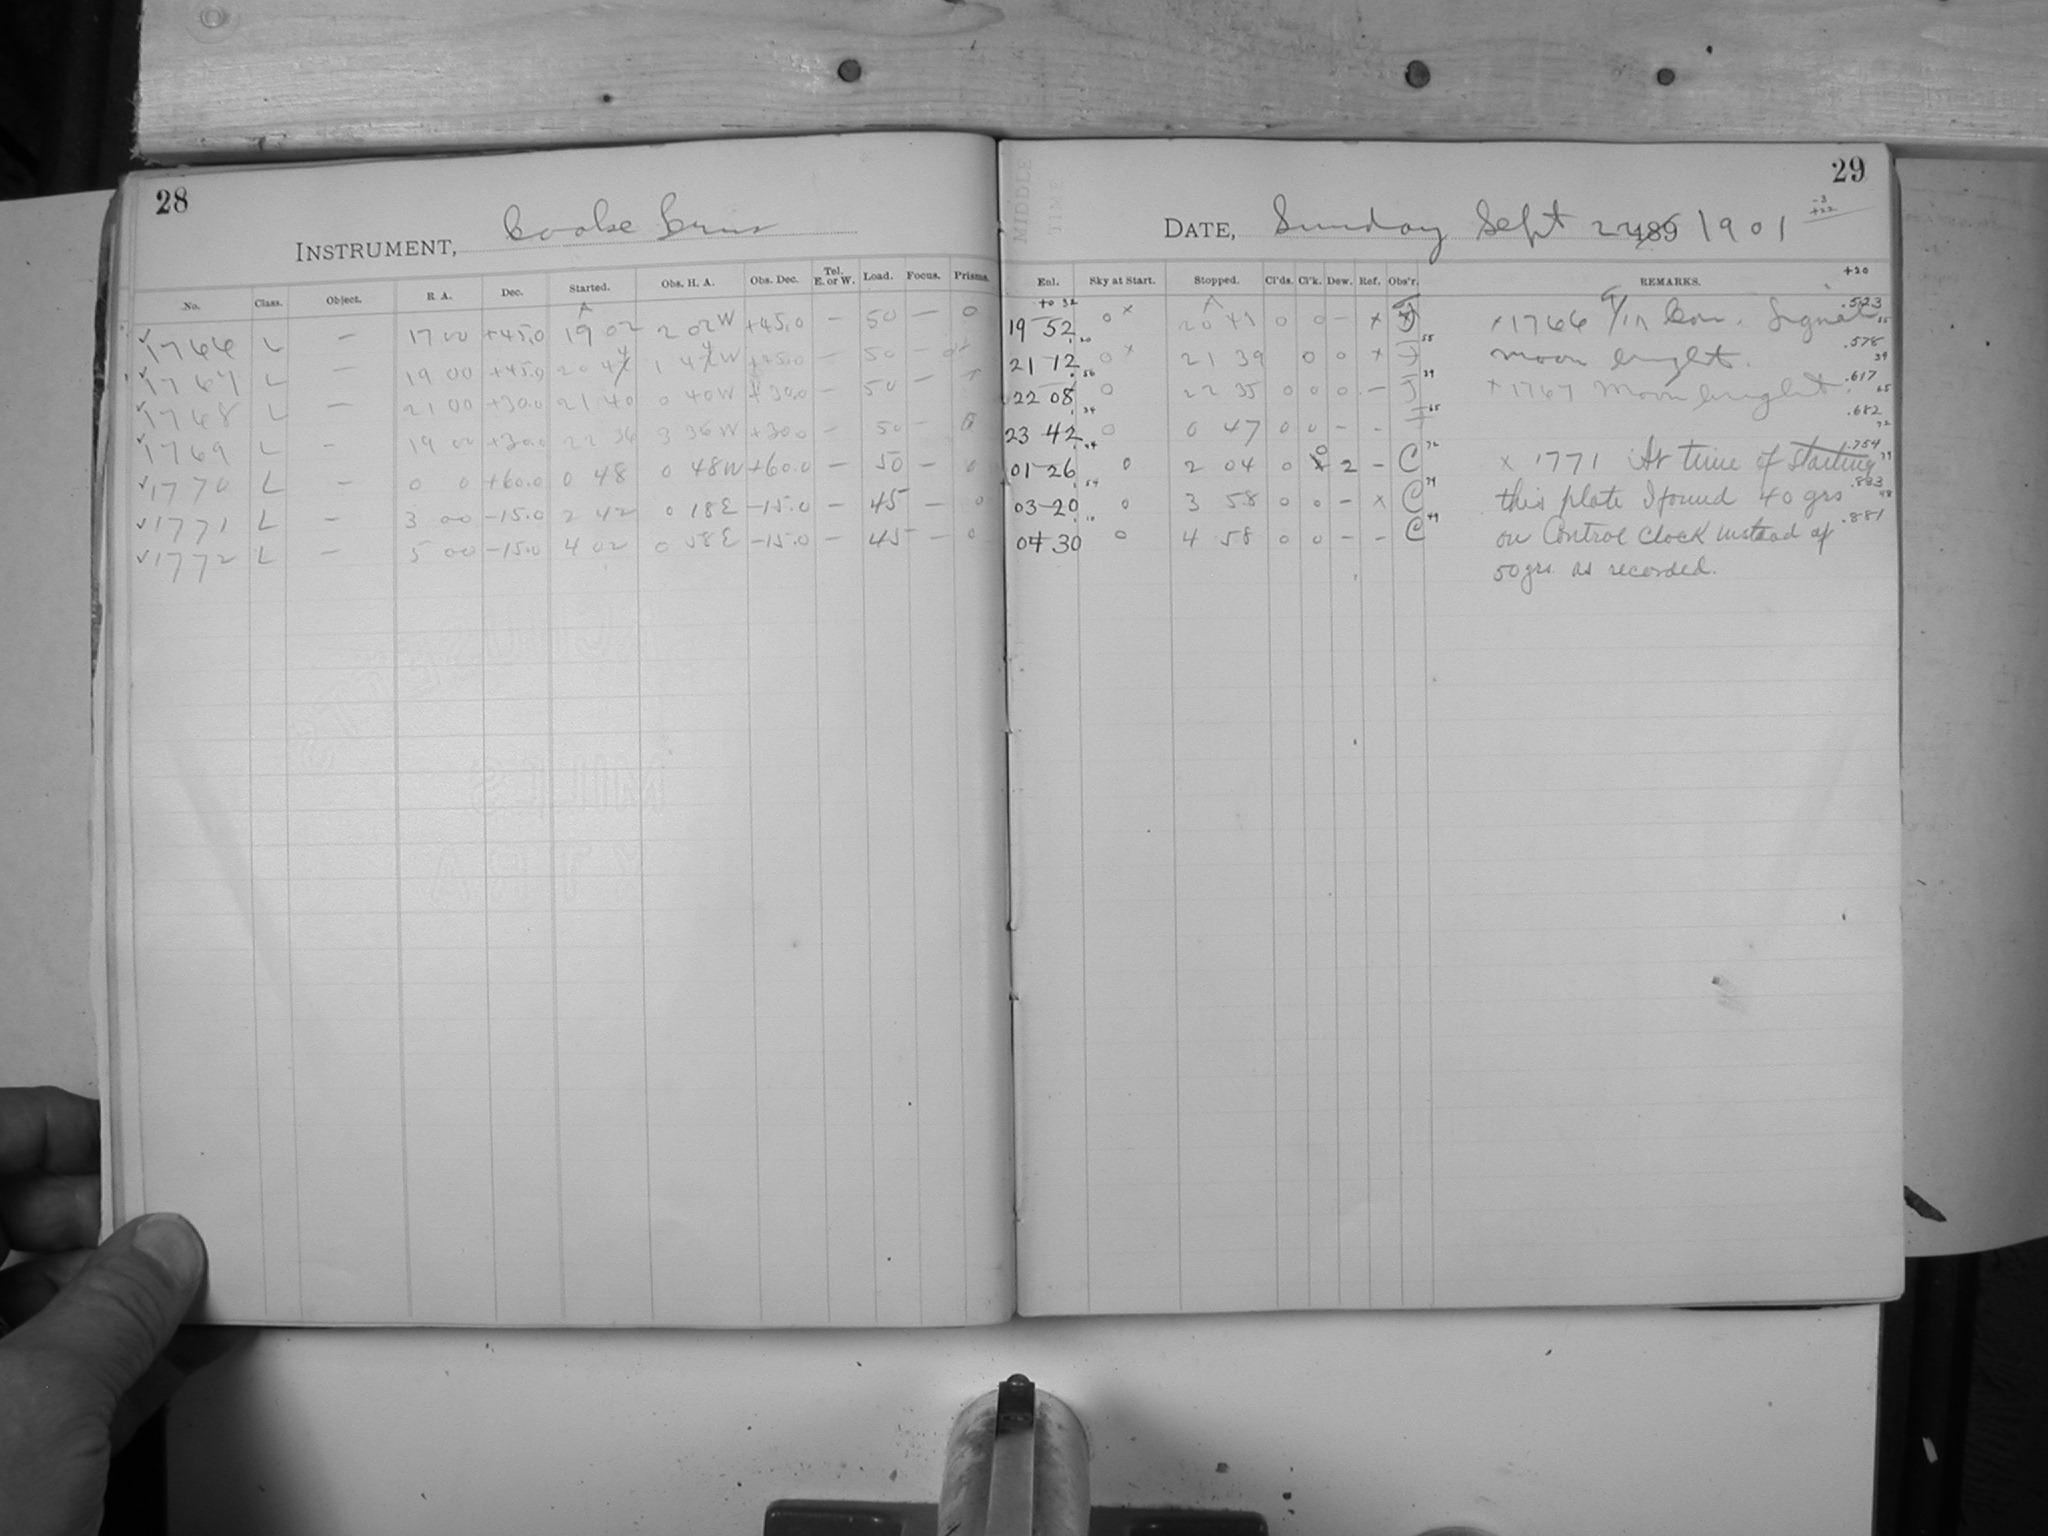 28
INSTRUMENT,
No. Class. Object. R. A. Dec. Started. Obs. H. A. Obs. Dec. Tel. E. or W. Load. Focus. Prisms.
✓1766 L — 17 00 +45.0 19 02 2 02W +45.0 — 50 — 0
✓1767 L — 19 00 +45.0 20 1 W +45.0 — 50 —
✓1768 L — 21 00 +30.0 21 40 0 40W +30.0 — 50 —
✓1769 L — 19 00 +30.0 22 36 3 36W +30.0 — 50 —
✓1770 L — 0 0 +60.0 0 48 0 48W +60.0 — 50 — 0
✓1771 L — 3 00 -15.0 2 42 0 18E -15.0 — 45 — 0
✓1772 L — 5 00 -15.0 4 02 0 58E -15.0 — 45 — 0
29
MIDDLE
TIME
DATE, Sunday Sept 189 1901
-3
+22
+20
Enl. Sky at Start. Stopped. Cl'ds. Cl'k. Dew. Ref. Obs'r. REMARKS.
19 52 0 x 0 0 — x J x 1766 Signal .523
21 12 0 x 21 39 0 0 x J 55 moon bright. .578
22 08 0 22 35 0 0 0 — J 39 x 1767 Moon bright. .617
23 42 0 0 47 0 0 — - 65 .682
01 26 0 2 04 0 2 — C 72 x 1771 At time of starting .754
03 20 0 3 58 0 0 — x C 79 this plate I found 40 grs .833
04 30 0 4 58 0 0 — - C 49 on Control Clock instead of .881
50 grs. as recorded.